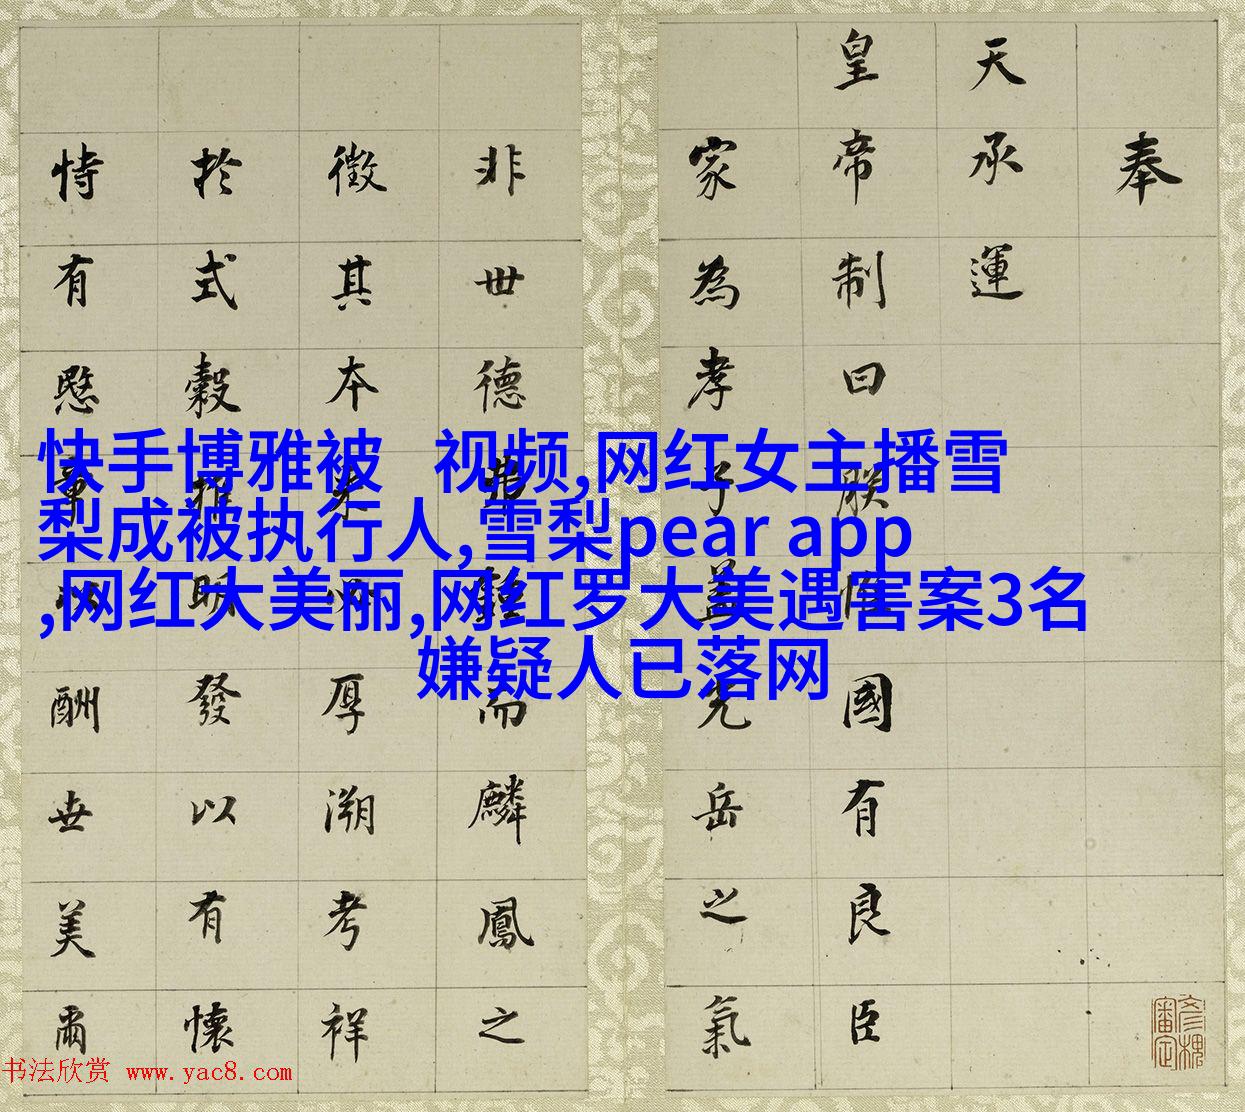 奉
天承運
皇帝制曰朕惟國有良臣
家為孝子蓋光岳之氣
非世德弗鍾而麟鳳之
徵其本必厚溯考祥
於式穀推明發以有懷
恃有愍章以酬世美爾
快手博雅被 视频,网红女主播雪
梨成被执行人,雪梨pear app
,网红大美丽,网红罗大美遇害案3名
嫌疑人已落网
书法欣赏 www.yac8.com